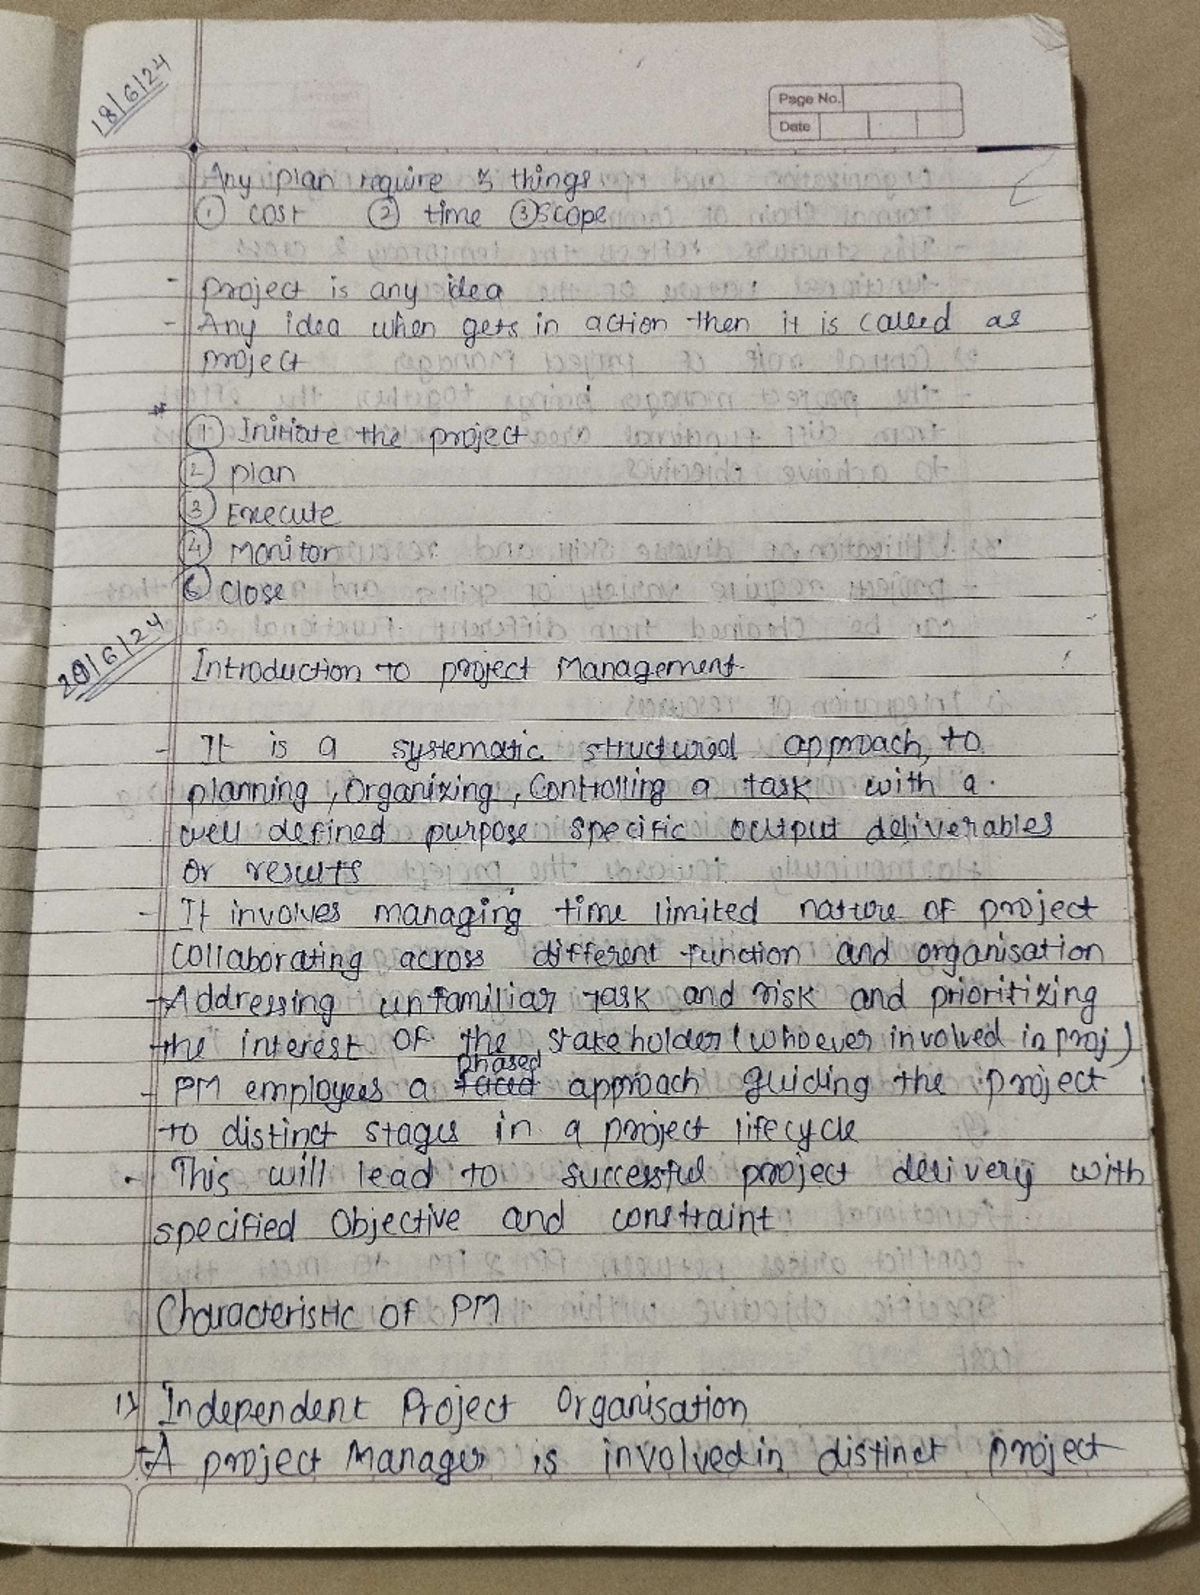 18/6/24
Page No.
Date
Any plan require 3 things
① cost ② time ③ scope
- project is any idea
- Any idea when gets in action then it is called as
project
*
① Initiate the project
② plan
③ Execute
④ Monitor
⑤ Close
20/6/24
Introduction to project Management
- It is a systematic structured approach, to
planning, Organizing, Controlling a task with a
well defined purpose specific output deliverables
Or results
- It involves managing time limited nature of project
Collaborating across different function and organisation
- Addressing unfamiliar task and risk and prioritizing
the interest of the stakeholder (whoever involved in proj)
phased
- PM employees a approach guiding the project
to distinct stages in a project lifecycle
- This will lead to successful project delivery with
specified Objective and constraint
Characteristic of PM
1) Independent Project Organisation
- A project Manager is involved in distinct project